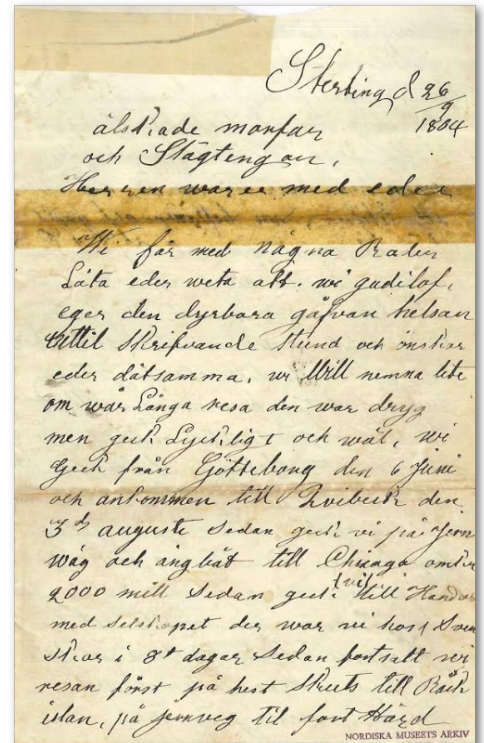 Sterling d 26/9
1864
älskade morfar
och Slägtingar,
Herren ware med eder
Wi får med någna Rader
Låta eder weta att. wi gudilof,
eger den dyrbara gåfvan helsan
intill Skrifvande stund och önskar
eder dätsamma, wi Will nemna lite
om war Långa resa den war dryg
men geck Lyckligt och wäl, wi
geck från Götteborg den 6 Juni
och ankommen till Qvibeck den
3 d augusti Sedan geck vi på Jern
wäg och ångbåt till Chicago omkr
2000 mill Sedan geck till
med selskapet der war vi hos Sven
skar i 8t dagar Sedan fortsatt wi
resan först på hest Skuts till Råck
islan, på jernveg til fort Hård
NORDISKA MUSEETS ARKIV